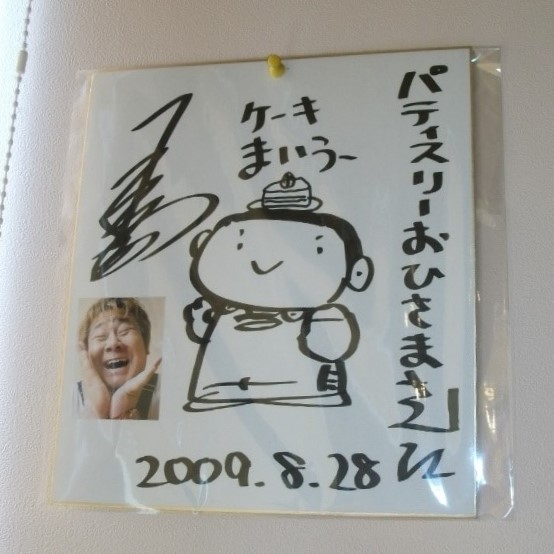 パティスリーおひさまさん江
ケーキ
まいうー
2009.8.28